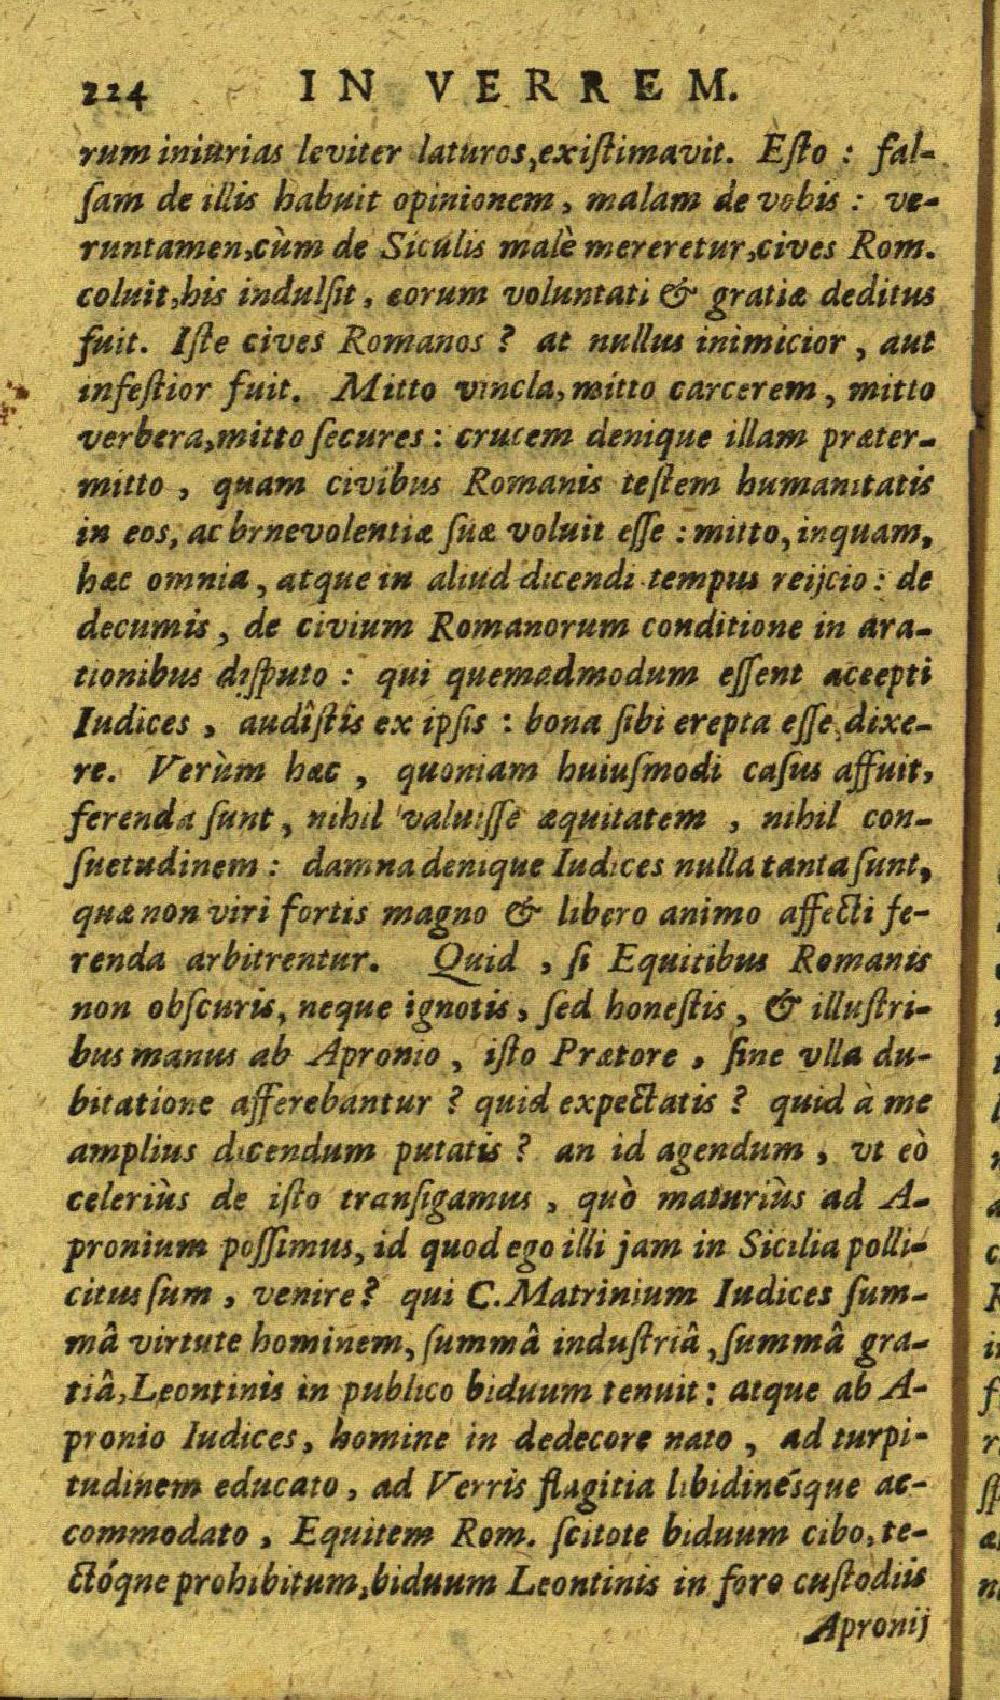 224 IN VERREM.
rum iniurias leviter laturos, exiſtimavit. Eſto : fal-
ſam de illis habuit opinionem, malam de vobis : ve-
runtamen, cùm de Siculis malè mereretur, cives Rom.
coluit, his indulſit, eorum voluntati & gratiæ deditus
fuit. Iſte cives Romanos ? at nullus inimicior, aut
infeſtior fuit. Mitto vincla, mitto carcerem, mitto
verbera, mitto ſecures : crucem denique illam præter-
mitto, quam civibus Romanis teſtem humanitatis
in eos, ac brnevolentiæ ſuæ voluit eſſe : mitto, inquam,
hæc omnia, atque in aliud dicendi tempus reijcio : de
decumis, de civium Romanorum conditione in ara-
tionibus diſputo : qui quemadmodum eſſent aceepti
Iudices, audîſtis ex ipſis : bona ſibi erepta eſſe dixe-
re. Verùm hæc, quoniam huiuſmodi caſus affuit,
ferenda ſunt, nihil valuiſſe æquitatem, nihil con-
ſuetudinem : damna denique Iudices nulla tanta ſunt,
quæ non viri fortis magno & libero animo affecti fe-
renda arbitrentur. Quid, ſi Equitibus Romanis
non obſcuris, neque ignotis, ſed honeſtis, & illuſtri-
bus manus ab Apronio, iſto Prætore, ſine vlla du-
bitatione afferebantur ? quid expectatis ? quid à me
amplius dicendum putatis ? an id agendum, vt eò
celeriùs de iſto tranſigamus, quò maturiùs ad A-
pronium poſſimus, id quod ego illi jam in Sicilia polli-
citus ſum, venire ? qui C. Matrinium Iudices ſum-
mâ virtute hominem, ſummâ induſtriâ, ſummâ gra-
tiâ, Leontinis in publico biduum tenuit : atque ab A-
pronio Iudices, homine in dedecore nato, ad turpi-
tudinem educato, ad Verris flagitia libidinésque ac-
commodato, Equitem Rom. ſcitote biduum cibo, te-
ctóqne prohibitum, biduum Leontinis in foro cuſtodiis
Apronij